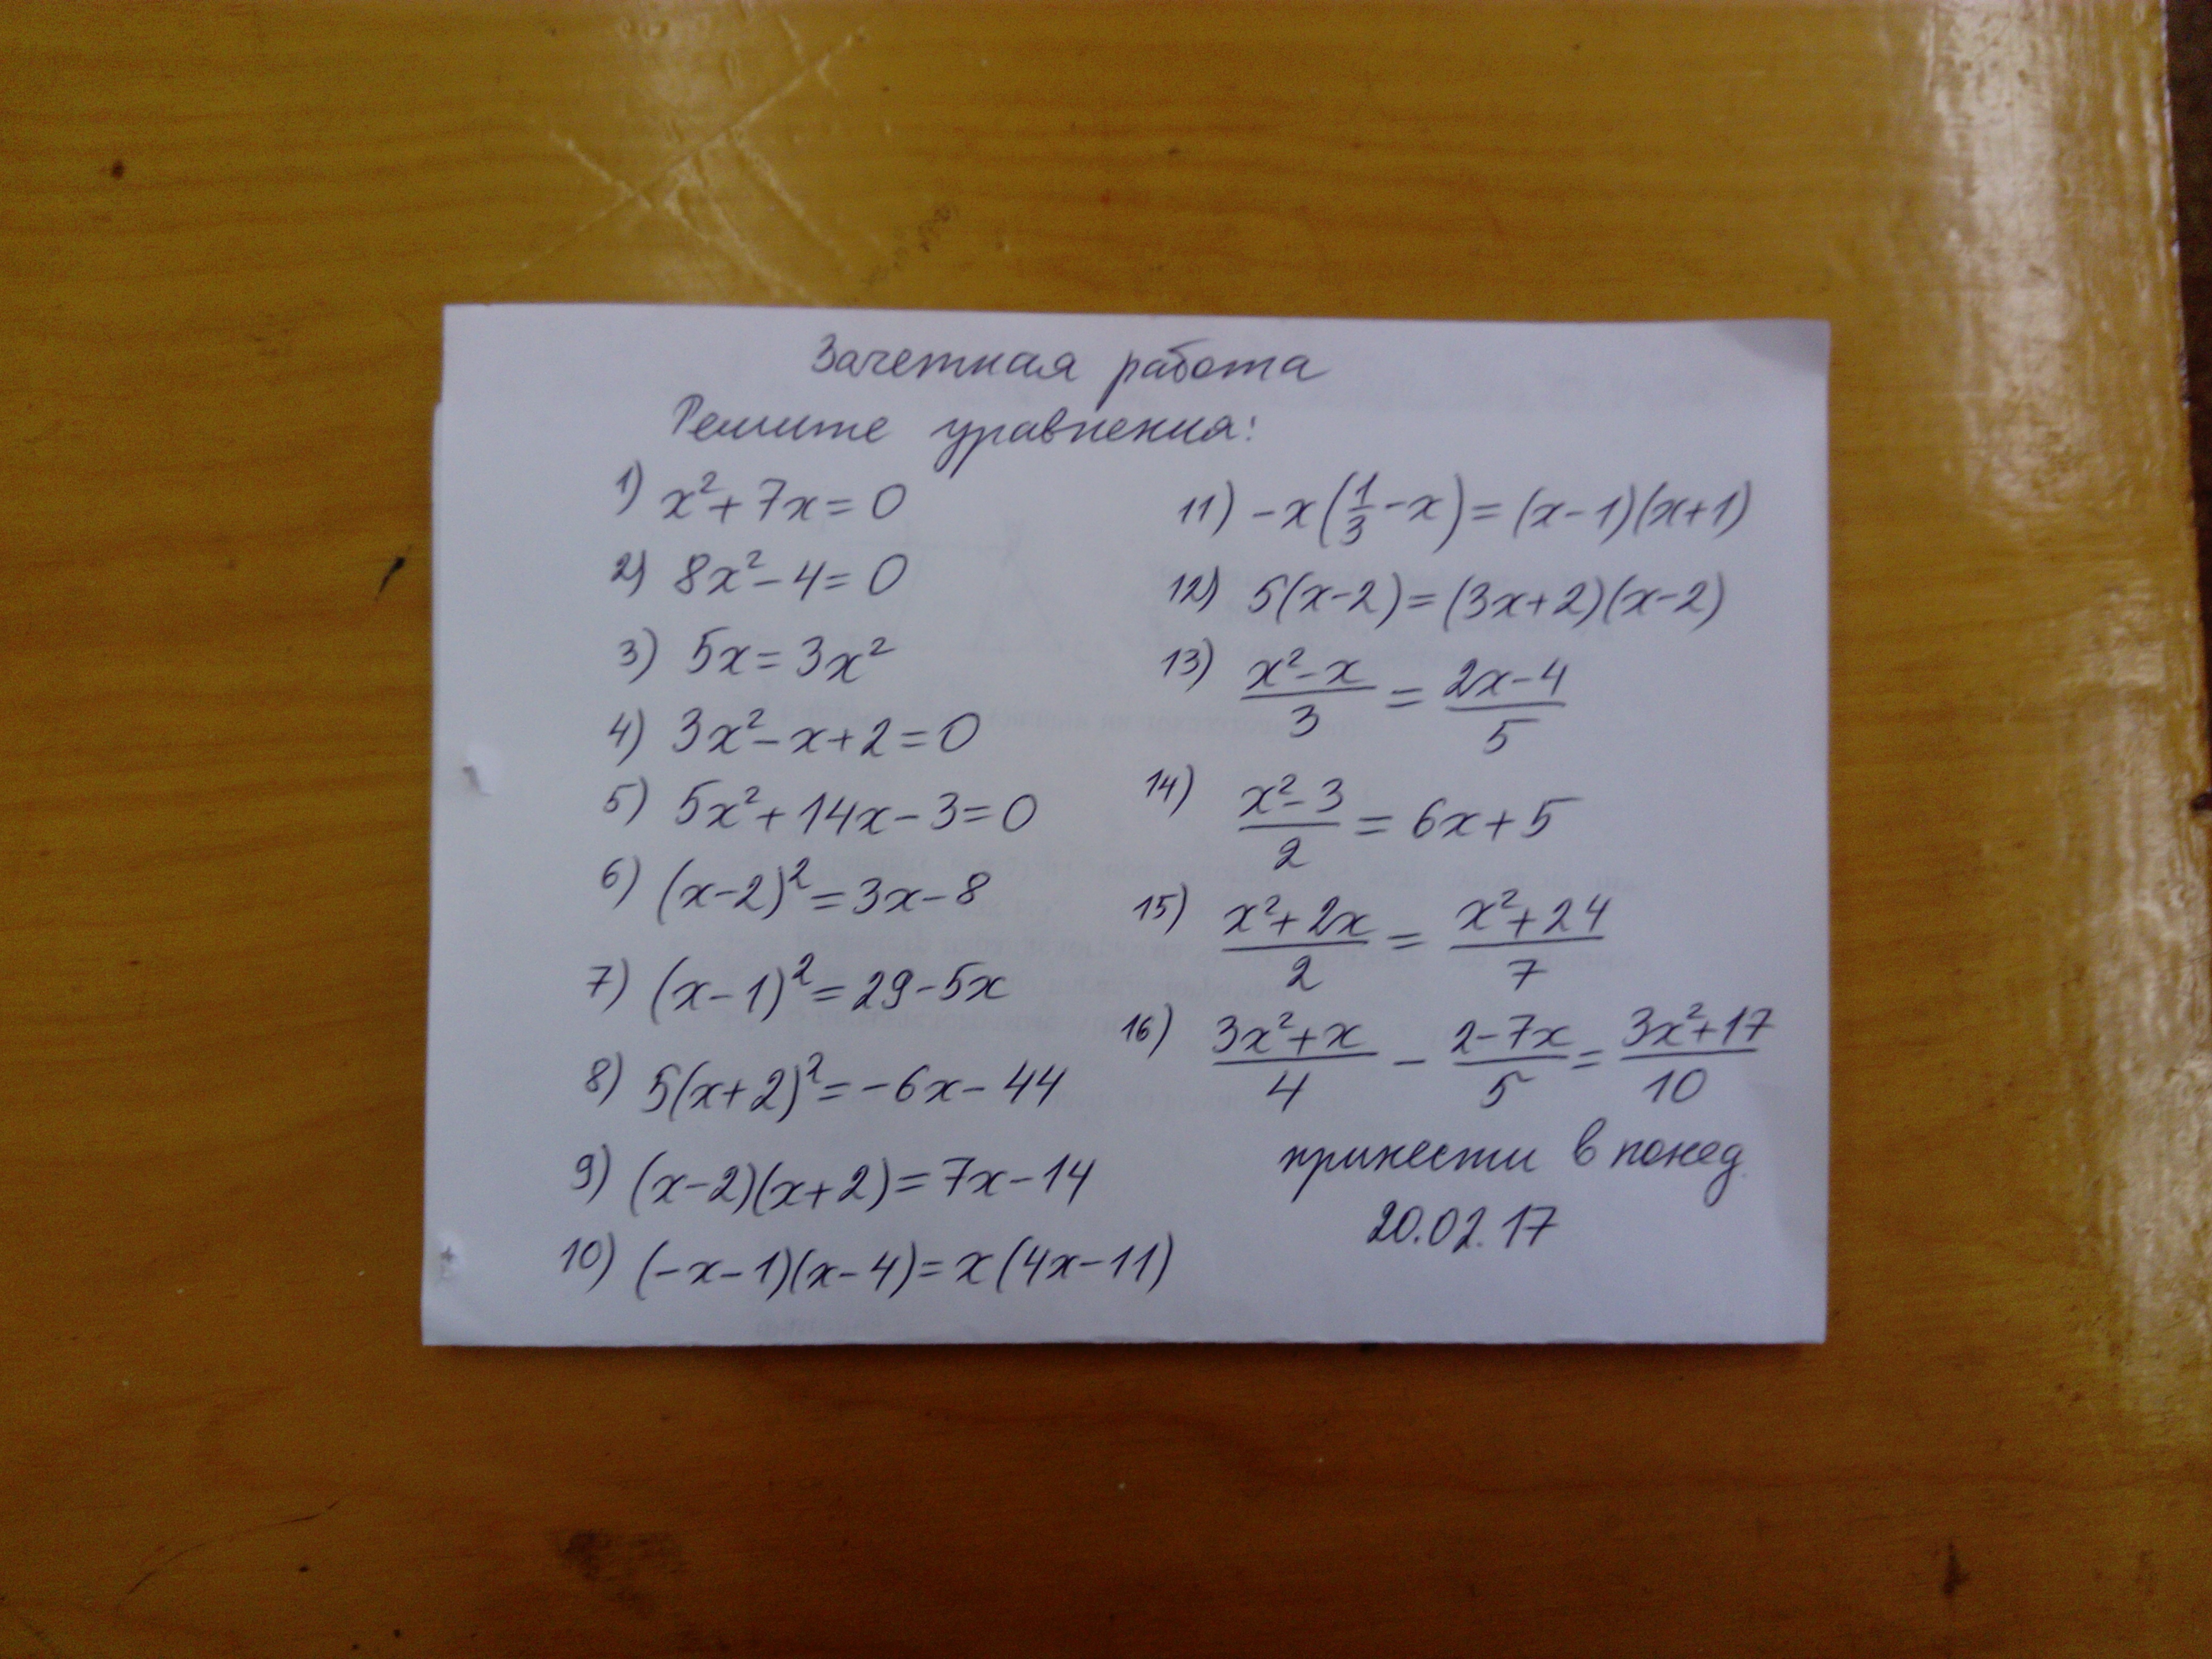 Зачетная работа
Решите уравнения:
1) x² + 7x = 0
2) 8x² - 4 = 0
3) 5x = 3x²
4) 3x² - x + 2 = 0
5) 5x² + 14x - 3 = 0
6) (x-2)² = 3x - 8
7) (x-1)² = 29 - 5x
8) 5(x+2)² = -6x - 44
9) (x-2)(x+2) = 7x - 14
10) (-x-1)(x-4) = x(4x-11)
11) -x(1/3 - x) = (x-1)(x+1)
12) 5(x-2) = (3x+2)(x-2)
13) (x² - x)/3 = (2x-4)/5
14) (x² - 3)/2 = 6x + 5
15) (x² + 2x)/2 = (x² + 24)/7
16) (3x² + x)/4 - (2-7x)/5 = (3x² + 17)/10
принести в понед.
20.02.17